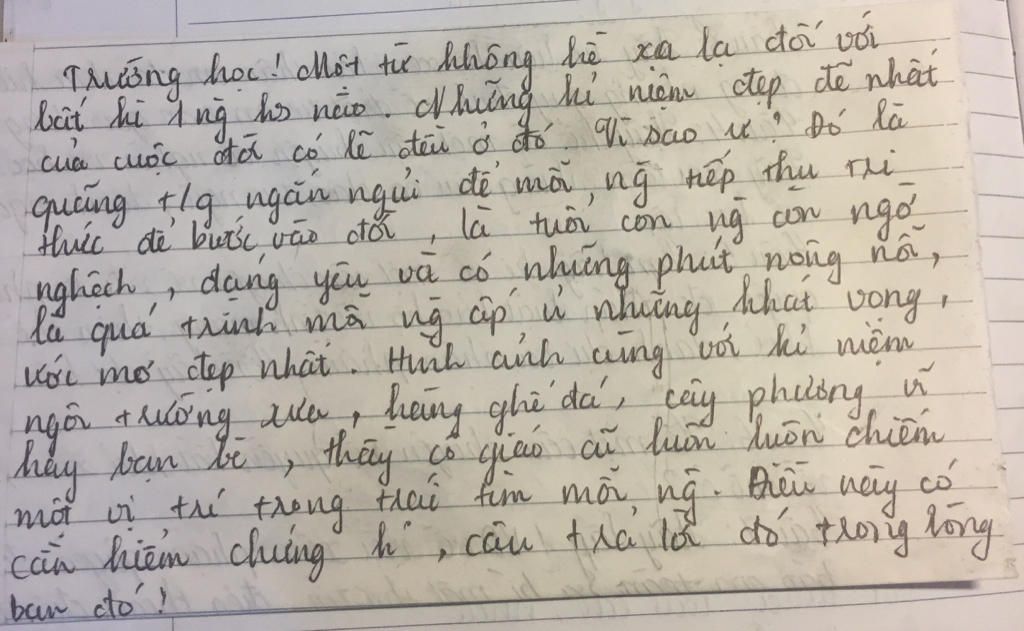 Trường học! Một từ không hề xa lạ đối với
bất kì 1 ng hs nào. Những kỉ niệm đẹp đẽ nhất
của cuộc đời có lẽ đều ở đó. Vì sao ư? Đó là
quãng t/g ngắn ngủi để mỗi ng tiếp thu tri
thức để bước vào đời, là tuổi con ng còn ngớ
nghếch, đáng yêu và có những phút nông nổi,
là quá trình mà ng ấp ủ những khát vọng,
ước mơ đẹp nhất. Hình ảnh cùng với kỉ niệm
ngôi trường xưa, hàng ghế đá, cây phượng vĩ
hay bạn bè, thầy cô giáo cũ luôn luôn chiếm
một vị trí trong trái tim mỗi ng. Điều này có
cần kiểm chứng k, câu trả lời do trong lòng
bạn đó!